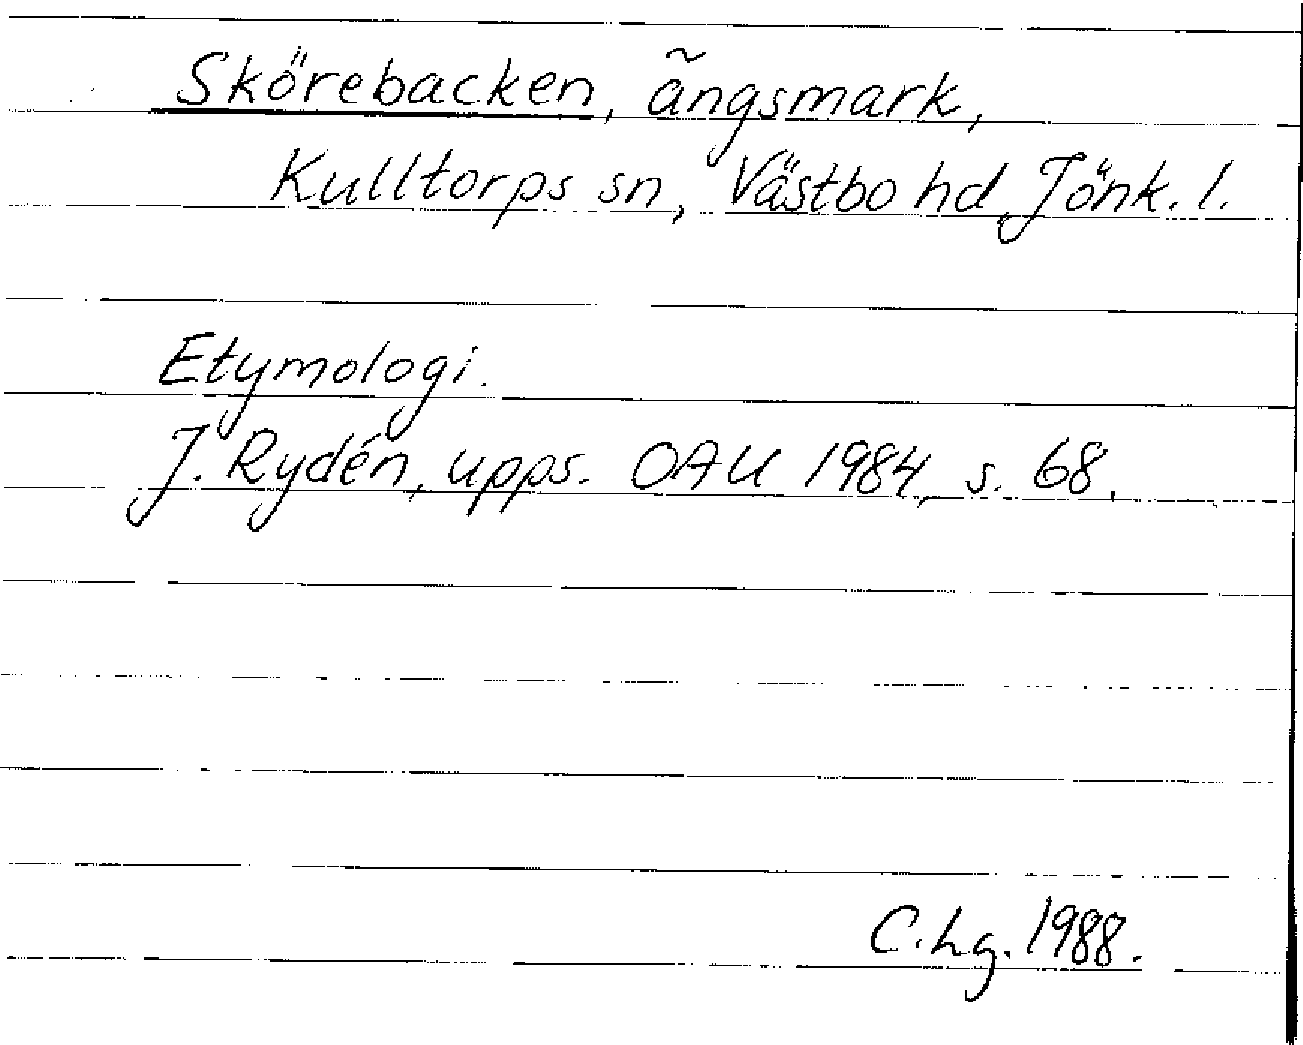 Skörebacken, ängsmark,
Kulltorps sn, Västbo hd, Jönk. l.
Etymologi.
J. Rydén, upps. OAU 1984, s. 68.
C.hg. 1988.